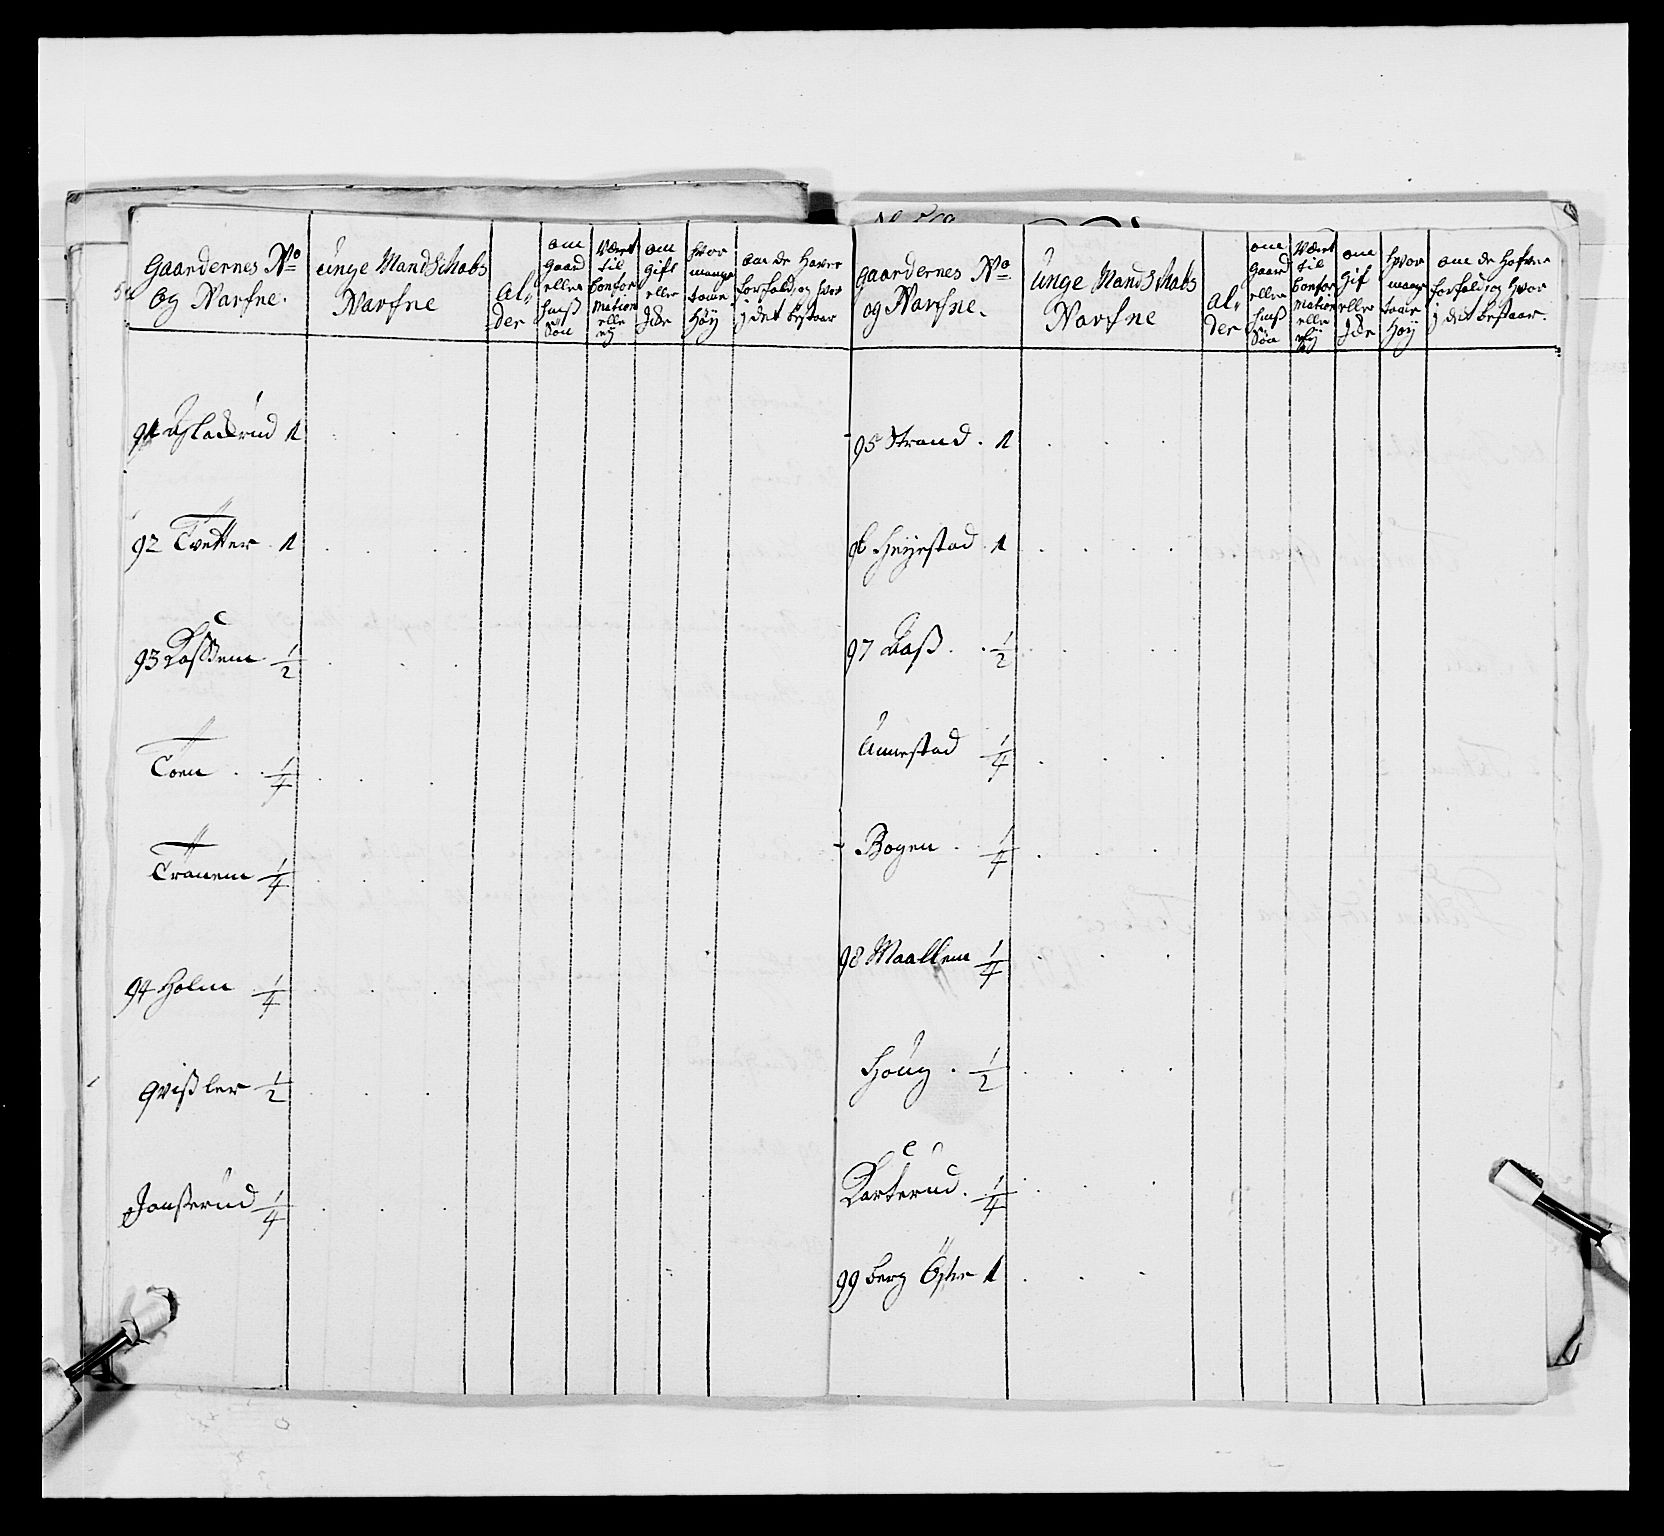 Gaardernes No
og Nafne.
unge Mandschabs
Nafne
al,
der
om
gaard
eller
huuß
Søn
Wæret
til
Confor
mation
elle
ey
om
gift
eller
ide
hvor
mange
tome
Høy
om de Haver
forfald, og hvor
j det bestaar
91 1
92 Tvetter. 1
93 1/2
Toen . . 1/4
Tronem 1/4
94 Holm 1/4
Qvißler 1/2
Janßerud 1/4
gaardernes No
og Nafne.
Unge Mandschabs
Nafne
al,
der
om
gaard
eller
huuß
Søn
Wæret
til
Confor
mation
elle
ey
om
gif
eller
ide
hvor
mange
tome
Høy
om de Hafver
forfald, og hvor
j det bestaar.
95 Strand . 1
96 Heyestad . 1
97 . . 1/2
Unnestad 1/4
Bogen . 1/4
98 Maallem 1/4
Houg . 1/2
Karterud . 1/4
99 berg Östre 1